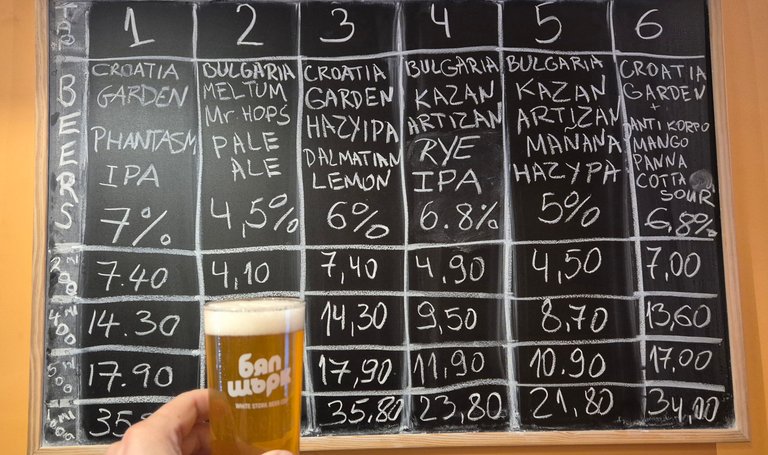 TAP 1 2 3 4 5 6
BEERS
CROATIA
GARDEN
PHANTASM
IPA
7%
BULGARIA
MELTUM
Mr HOPS
PALE
ALE
4,5%
CROATIA
GARDEN
HAZYIPA
DALMATIAN
LEMON
6%
BULGARIA
KAZAN
ARTIZAN
RYE
IPA
6.8%
BULGARIA
KAZAN
ARTIZAN
MAÑANA
HAZYPA
5%
CROATIA
GARDEN
+
ANTI KORPO
MANGO
PANNA
COTTA
SOUR
6,8%
200 ml 7.40 4,10 7,40 4,90 4,50 7,00
400 ml 14.30 14,30 9,50 8,70 13,60
500 ml 17.90 17,90 11,90 10.90 17,00
35,80 23,80 21,80 34,00
бял
щърк
WHITE STORK BEER CO